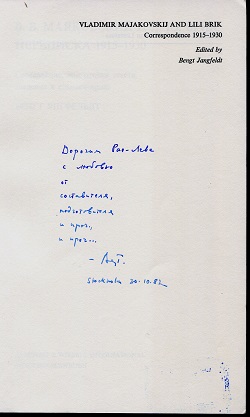 VLADIMIR MAJAKOVSKIJ AND LILI BRIK
Correspondence 1915–1930
Edited by
Bengt Jangfeldt
Дорогим Рае-Леве
с любовью
от
составителя,
подготовителя
и проч.,
и проч...
Stockholm 30.10.82